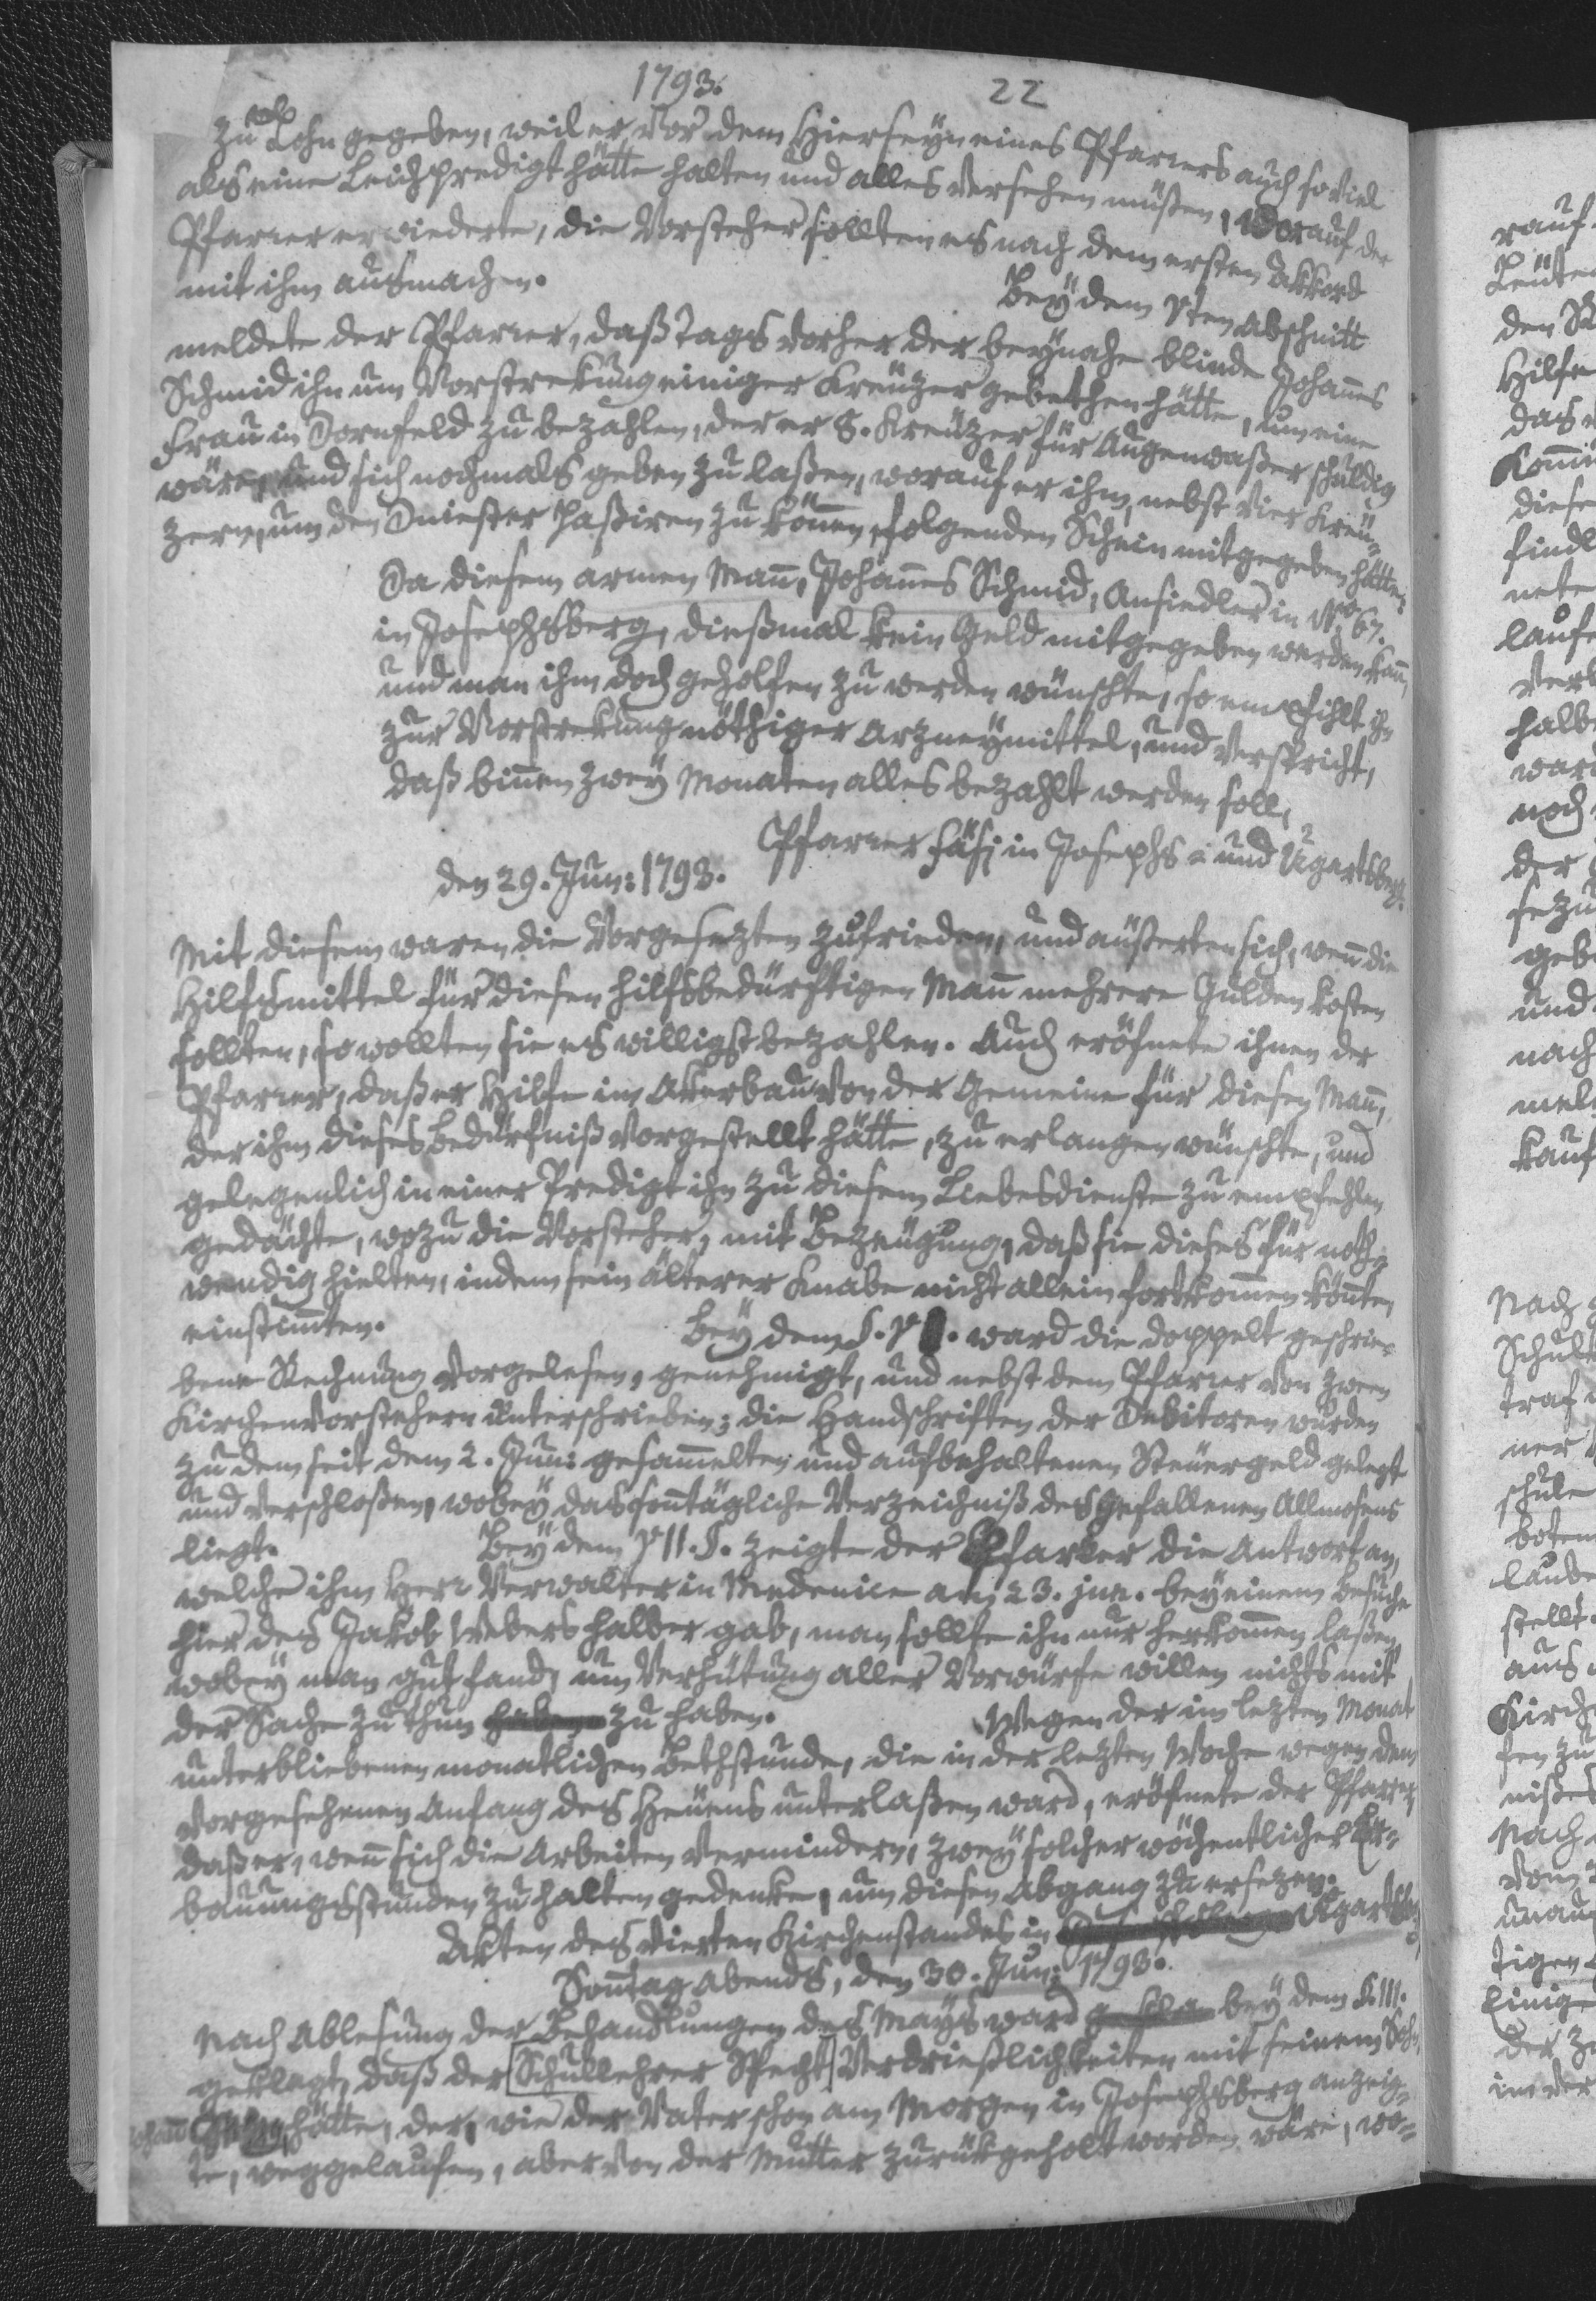 1793.
22
zu Lohn gegeben, weil er vor dem Hierseyn eines Pfarrers auch so viel
als eine Leichpredigt hätte halten und alles versehen müßen, worauf der
Pfarrer erwiederte, die Vorsteher sollten es nach dem ersten Akkord
mit ihm ausmachen.
Bey dem Vten Abschnitt
meldete der Pfarrer, daß tags vorher der beynahe blinde Johañes
Schmid ihn um Vorstrekung einiger Kreuzer gebethen hätte, um eine
Frau in Dornfeld zu bezahlen, der er 8. Kreuzer für Augenwaßer schuldig
wäre, und sich nochmals geben zu laßen, worauf er ihm, nebst vier Kreu-
zern, um den Dniester paßiren zu köñen, folgenden Schein mitgegeben hätte:
Da diesem armen Mañ, Johañes Schmid, Ansiedler in No. 67.
in Josephsberg, dießmal kein Geld mitgegeben werden kañ,
und man ihm doch geholfen zu werden wünschte, so empfihlt ihn
zur Vorstrekung nöthiger Arzneymittel, und verspricht,
daß biñen zwey Monaten alles bezahlt werden soll,
Pfarrer Fäsi in Josephs- und Ugartsberg.
den 29. Jun: 1793.
Mit diesem waren die Vorgesezten zufrieden, und äußerten sich, weñ die
Hilfsmittel für diesen hilfsbedürftigen Mañ mehrere Gulden kosten
sollten, so wollten sie es willigst bezahlen. Auch eröfnete ihnen der
Pfarrer, daß er Hilfe im Akerbau von der Gemeine für diesen Mañ,
der ihm dieses Bedürfniß vorgestellt hätte, zu erlangen wünschte, und
gelegenlich in einer Predigt ihn zu diesem Liebesdienste zu empfehlen
gedächte, wozu die Vorsteher, mit Bezeugung, daß sie dieses für noth-
wendig hielten, indem sein älterer Knabe nicht allein fortkom̃en köñte,
einstim̃ten.
Bey dem §. V. ward die doppelt geschrie-
bene Rechnung vorgelesen, genehmigt, und nebst dem Pfarrer von zween
Kirchenvorstehern unterschrieben; die Handschriften der Debitoren wurden
zu dem seit dem 2. Jun: gesam̃elten und aufbehaltenen Steuergeld gelegt
und verschloßen, wobey das soñtägliche Verzeichniß des gefallenen Allmosens
liegt.
Bey dem VII. §. zeigte der Pfarrer die Antwort an,
welche ihm Herr Verwalter in Medenice am 23. jun. bey einem Besuche
hier des Jakob Webers halber gab, man sollte ihn nur herkom̃en laßen
wobey man gut fand, um Verhütung aller Vorwürfe willen nichts mit
der Sache zu thun haben zu haben.
Wegen der im lezten Monat
unterbliebenen monatlichen Bethstunde, die in der lezten Woche wegen dem
vorgesehenen Anfang des Heuens unterlaßen ward, eröfnete der Pfarrer,
daß er, weñ sich die Arbeiten vermindern, zwey solcher wöchentlicher Er-
bauungsstunden zu halten gedenke, um diesen Abgang zu ersezen.
Akten des vierten Kirchenstandes in Ugartsberg
Soñtag abends, den 30. Jun: 1793.
Nach Ablesung der Behandlungen des Mays ward bey dem §. III.
geklagt, daß der Schullehrer Specht Verdrießlichkeiten mit seinem Sohn
hätte, der, wie der Vater schon am Morgen in Josephsberg anzeig-
te, weggelaufen, aber von der Mutter zurükgeholt worden wäre, wo-